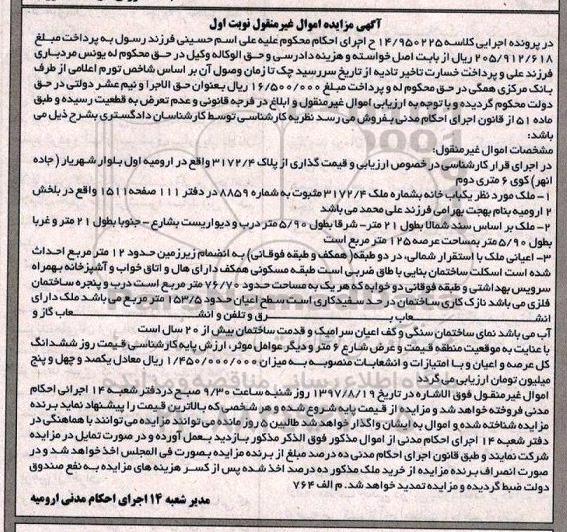 آگهی مزایده اموال غیرمنقول نوبت اول
در پرونده اجرایی کلاسه ۱۴/۹۵۰۲۲۵ ح اجرای احکام محکوم علیه علی اسم حسینی فرزند رسول به پرداخت مبلغ
۲۰۵/۹۱۲/۶۱۸ ریال از بابت اصل خواسته و هزینه دادرسی و حق الوکاله وکیل در حق محکوم له یونس مردباری
فرزند علی و پرداخت خسارت تاخیر تادیه از تاریخ سررسید چک تا زمان وصول آن بر اساس شاخص تورم اعلامی از طرف
بانک مرکزی همگی در حق محکوم له و پرداخت مبلغ ۱۶/۵۰۰/۰۰۰ ریال بعنوان حق الاجرا و نیم عشر دولتی در حق
دولت محکوم گردیده و با توجه به ارزیابی اموال غیرمنقول و ابلاغ در فرجه قانونی و عدم تعرض به قطعیت رسیده و طبق
ماده ۵۱ از قانون اجرای احکام مدنی بفروش می رسد نظریه کارشناسی توسط کارشناسان دادگستری بشرح ذیل می
باشد:
مشخصات اموال غیرمنقول:
در اجرای قرار کارشناسی در خصوص ارزیابی و قیمت گذاری از پلاک ۳۱۷۲/۴ واقع در ارومیه اول بلوار شهریار (جاده
انهر) کوی ۶ متری دوم
۱- ملک مورد نظر یکباب خانه بشماره ملک ۳۱۷۲/۴ مثبوت به شماره ۸۸۵۹ در دفتر ۱۱۱ صفحه ۱۵۱۱ واقع در بخش
۲ ارومیه بنام بهجت بهرامی فرزند علی محمد می باشد
۲- ملک بر اساس سند شمالا بطول ۲۱ متر- شرقا بطول ۵/۹۰ متر درب و دیواریست بشارع - جنوبا بطول ۲۱ متر و غربا
بطول ۵/۹۰ متر بمساحت عرصه ۱۲۵ متر مربع است
۳- اعیانی ملک با استقرار شمالی، در دو طبقه (همکف و طبقه فوقانی) به انضمام زیرزمین حدود ۱۲ متر مربع احداث
شده است اسکلت ساختمان بنایی با طاق ضربی است طبقه مسکونی همکف دارای هال و اتاق خواب و آشپزخانه بهمراه
سرویس بهداشتی و طبقه فوقانی دو خوابه که هر یک به مساحت حدود ۷۶/۷۰ متر مربع است درب و پنجره ساختمان
فلزی می باشد نازک کاری ساختمان در حد سفیدکاری است سطح اعیان حدود ۱۵۳/۵ متر مربع می باشد ملک دارای
انشعاب برق و تلفن و انشعاب گاز و
آب می باشد نمای ساختمان سنگی و کف اعیان سرامیک و قدمت ساختمان بیش از ۲۰ سال است
با عنایت به موقعیت منطقه قیمت و عرض شارع ۶ متر و دیگر عوامل موثر، ارزش پایه کارشناسی قیمت روز ششدانگ
کل عرصه و اعیان و با امتیازات و انشعابات منصوبه به میزان ۱/۴۵۰/۰۰۰/۰۰۰ ریال معادل یکصد و چهل و پنج
میلیون تومان ارزیابی می گردد
اموال غیرمنقول فوق الاشاره در تاریخ ۱۳۹۷/۸/۱۹ روز شنبه ساعت ۹/۳۰ صبح در دفتر شعبه ۱۴ اجرائی احکام
مدنی فروخته خواهد شد و مزایده از قیمت پایه شروع شده و هر شخصی که بالاترین قیمت را پیشنهاد نماید برنده
مزایده شناخته شده و اموال به ایشان واگذار خواهد شد طالبین ۵ روز مانده می توانند مزایده می توانند با هماهنگی در
دفتر شعبه ۱۴ اجرای احکام مدنی از اموال مذکور فوق الذکر مذکور بازدید بعمل آورده و در صورت تمایل در مزایده
شرکت نمایند و طبق قانون اجرای احکام مدنی ده درصد مبلغ از برنده مزایده بصورت فی المجلس اخذ خواهد شد و در
صورت انصراف برنده مزایده از خرید ملک مذکور ده درصد اخذ شده پس از کسر هزینه های مزایده به نفع صندوق
دولت ضبط گردیده و مزایده تمدید خواهد شد. م الف ۷۶۴
مدیر شعبه ۱۴ اجرای احکام مدنی ارومیه